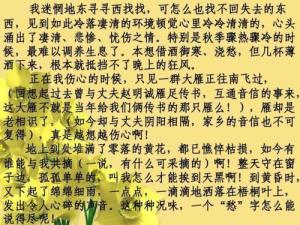 我迷惘地东寻寻西找找,可怎么也找不回失去的东
西,见到如此冷落凄清的环境顿觉心里冷冷清清的,心头
涌出了凄清、悲惨、忧伤之情。特别是秋季骤热骤冷的时
候,最难以调养生息了。本想借酒御寒、浇愁,但几杯薄
酒下来,根本就抵挡不了晚上的狂风。
正在我伤心的时候,只见一群大雁正往南飞过,
(回想起过去曾与丈夫赵明诚雁足传书,互通音信的事来,
这大雁不就是当年给我们俩传书的那只雁么!),雁却是
老相识了,(如今却与丈夫阴阳相隔,家乡的音信也不可
复得)真是越想越伤心啊!
地上到处堆满了零落的黄花,都已憔悴枯损,如今有
谁能与我共摘(一说,有什么可采摘的)啊!整天守在窗
子边,孤孤单单的,叫我怎么才能挨到天黑啊!到黄昏时,
又下起了绵绵细雨,一点点,一滴滴地洒落在梧桐叶上,
发出令人心碎的声音。这种种况味,一个“愁”字怎么能
说得尽呢!